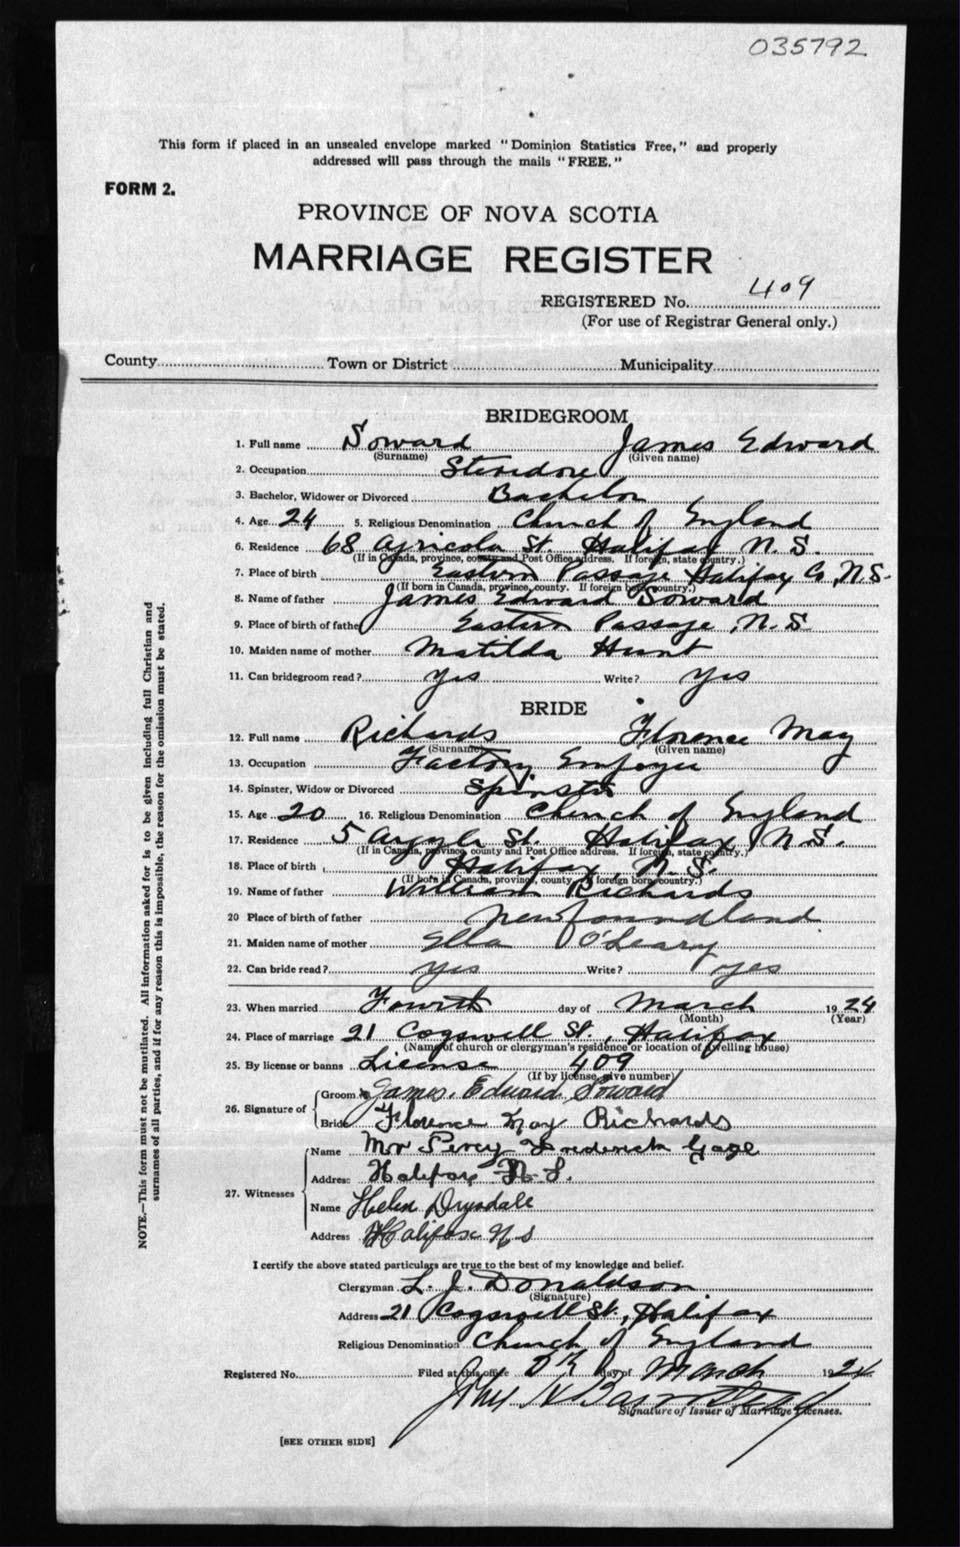 035792
This form if placed in an unsealed envelope marked "Dominion Statistics Free," and properly
addressed will pass through the mails "FREE."
FORM 2.
PROVINCE OF NOVA SCOTIA
MARRIAGE REGISTER
REGISTERED No. 409
(For use of Registrar General only.)
County Town or District Municipality
BRIDEGROOM
1. Full name Soward James Edward
(Surname) (Given name)
2. Occupation Stevedore
3. Bachelor, Widower or Divorced Bachelor
4. Age 24 5. Religious Denomination Church of England
6. Residence 68 Agricola St. Halifax N.S.
(If in Canada, province, county and Post Office address. If foreign, state country.)
7. Place of birth Eastern Passage Halifax Co N.S.
(If born in Canada, province, county. If foreign born country.)
8. Name of father James Edward Soward
9. Place of birth of father Eastern Passage N.S.
10. Maiden name of mother Matilda Hunt
11. Can bridegroom read? yes Write? yes
BRIDE
12. Full name Richards Florence May
(Surname) (Given name)
13. Occupation Factory
14. Spinster, Widow or Divorced Spinster
15. Age 20 16. Religious Denomination Church of England
17. Residence 5 Argyle St. Halifax N.S.
(If in Canada, province, county and Post Office address. If foreign, state country.)
18. Place of birth Halifax N.S.
(If born in Canada, province, county. If foreign born country.)
19. Name of father William Richards
20 Place of birth of father Newfoundland
21. Maiden name of mother Ella O'Leary
22. Can bride read? yes Write? yes
23. When married Fourth day of March 1924
(Month) (Year)
24. Place of marriage 21 Cogswell St, Halifax
(Name of church or clergyman's residence or location of dwelling house)
25. By license or banns License 409
(If by license, give number)
26. Signature of
Groom James Edward Soward
Bride Florence May Richards
27. Witnesses
Name Mr Percy Frederick Gage
Address Halifax N.S.
Name Helen Drysdale
Address Halifax N S
I certify the above stated particulars are true to the best of my knowledge and belief.
Clergyman L. J. Donaldson
(Signature)
Address 21 Cogswell St, Halifax
Religious Denomination Church of England
Registered No. Filed at this office day of March 1924
John H Barnstead
Signature of Issuer of Marriage Licenses.
[SEE OTHER SIDE]
NOTE.—This form must not be mutilated. All information asked for is to be given including full Christian and
surnames of all parties, and if for any reason this is impossible, the reason for the omission must be stated.